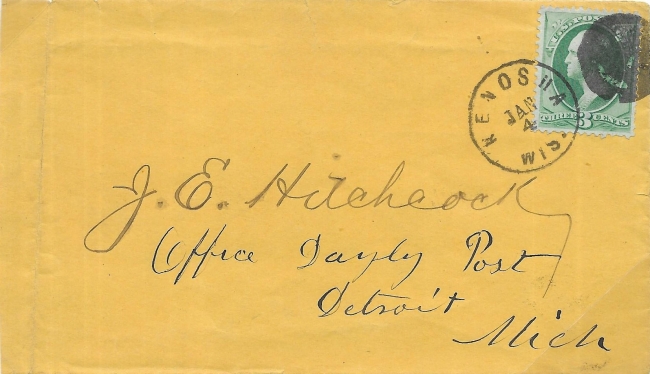 U.S. POSTAGE
THREE 3 CENTS
KENOSHA
JAN
4
WIS.
J. E. Hitchcock
Office Dayly Post
Detroit
Mich